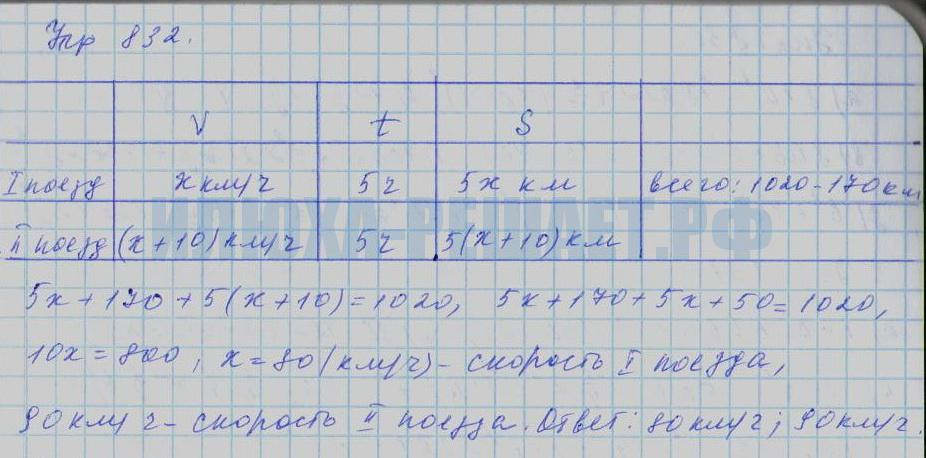 Упр 832.
V t S
I поезд x км/ч 5ч 5x км всего: 1020-170км
ИЛЮХА-РЕШАЕТ.РФ
II поезд (x+10) км/ч 5ч 5(x+10) км
5x+170+5(x+10)=1020, 5x+170+5x+50=1020,
10x=800, x=80(км/ч)- скорость I поезда,
90км/ч- скорость II поезда. Ответ: 80км/ч; 90км/ч.